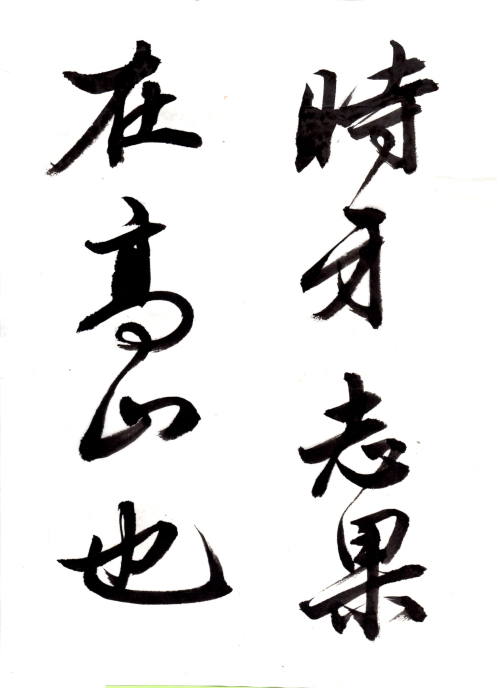 時牙志果
在高山也